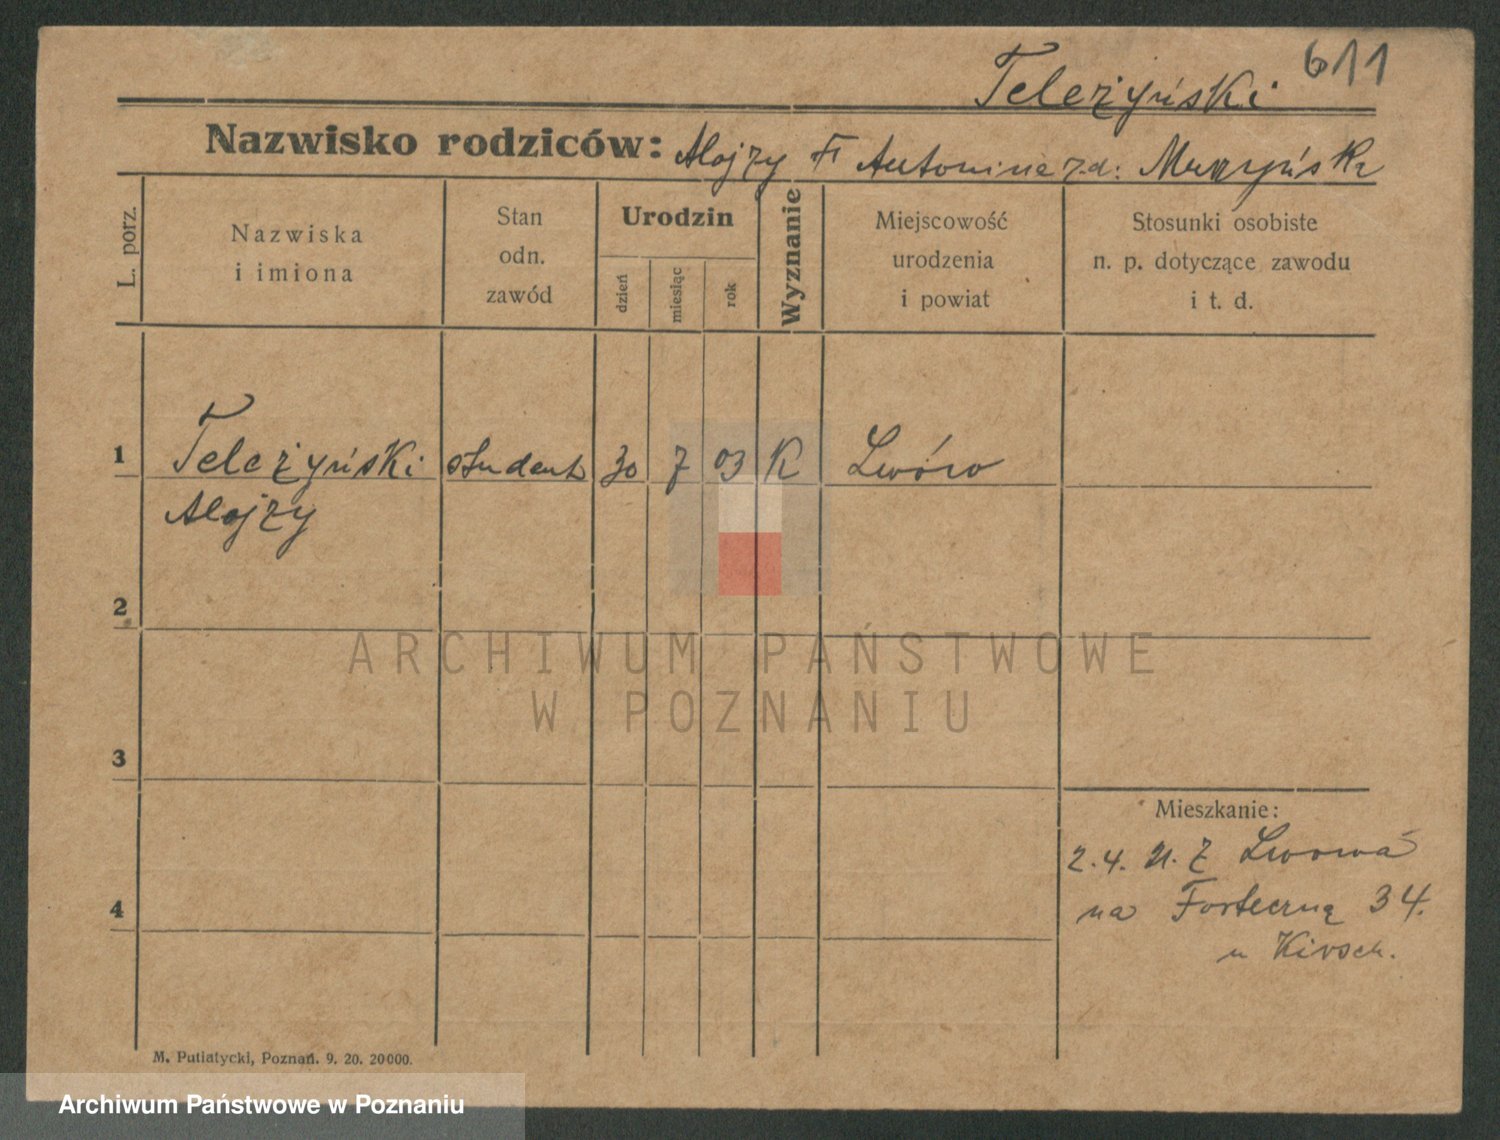 611
Teleżyński
Nazwisko rodziców: Alojzy Antonina z.d.:
L. porz.
Nazwiska
i imiona
Stan
odn.
zawód
Urodzin
dzień
miesiąc
rok
Wyznanie
Miejscowość
urodzenia
i powiat
Stosunki osobiste
n. p. dotyczące zawodu
i t. d.
1 Teleżyński student 30 7 03 K Lwów
Alojzy
2
3
4
Mieszkanie:
2.4. 21. z Lwowa
na Forteczną 34.
u Kirsch.
M. Putiatycki, Poznań. 9. 20. 20000.
ARCHIWUM PAŃSTWOWE
W POZNANIU
Archiwum Państwowe w Poznaniu